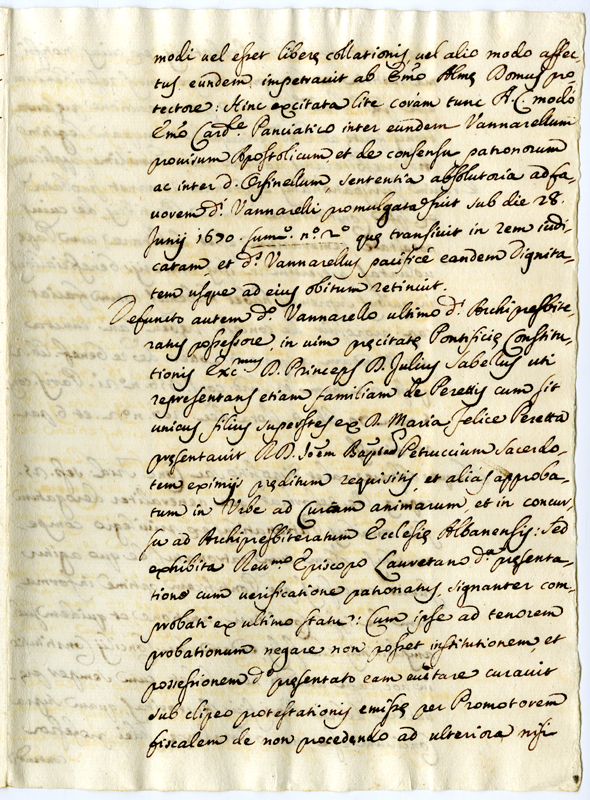 modi vel esset liberę collationis, vel alio modo affec-
tus eundem impetravit ab Emo Almę Domus pro
tectore: Hinc excitata lite coram tunc A.C. modo
Emo Card.le Panciatico inter eundem Vannarellum
provisum Apostolicum, et de consensu patronorum
ac inter d. Orsinellum, sententia absolutoria ad fa-
vorem d.i Vannarelli promulgata fuit sub die 28.
Junij 1690. sum.o n.o 2.o quę transivit in rem iudi-
catam, et d.s Vannarellus pacificè eandem Dignita-
tem usque ad eius obitum retinuit.
Defuncto autem d.o Vannarello ultimo d.i Archipresbite-
ratus possessore, in vim pręcitatę Pontificię Constitu-
tionis Exc.mus D. Princeps D. Julius Sabellus uti
representans etiam familiam de Perettis cum sit
unicus filius superstes ex D. Maria Felice Peretta
pręsentavit R.D. Joem Bap.tam Petruccium Sacerdo-
tem eximijs pręditum requisitis, et aliàs approba-
tum in Urbe ad Curam animarum, et in concur-
su ad Archipresbiteratum Ecclesię Albanensis: Sed
exhibita Reu.mo Episcopo Lauretano d.a pręsenta-
tione cum verificatione patronatus, signanter com-
probati ex ultimo statu: Cum ipse ad tenorem
probationum negare non posset institutionem, et
possessionem d.o pręsentato eam evitare curavit
sub clipeo protestationis emissę per Promotorem
fiscalem de non procedendo ad ulteriora nisi